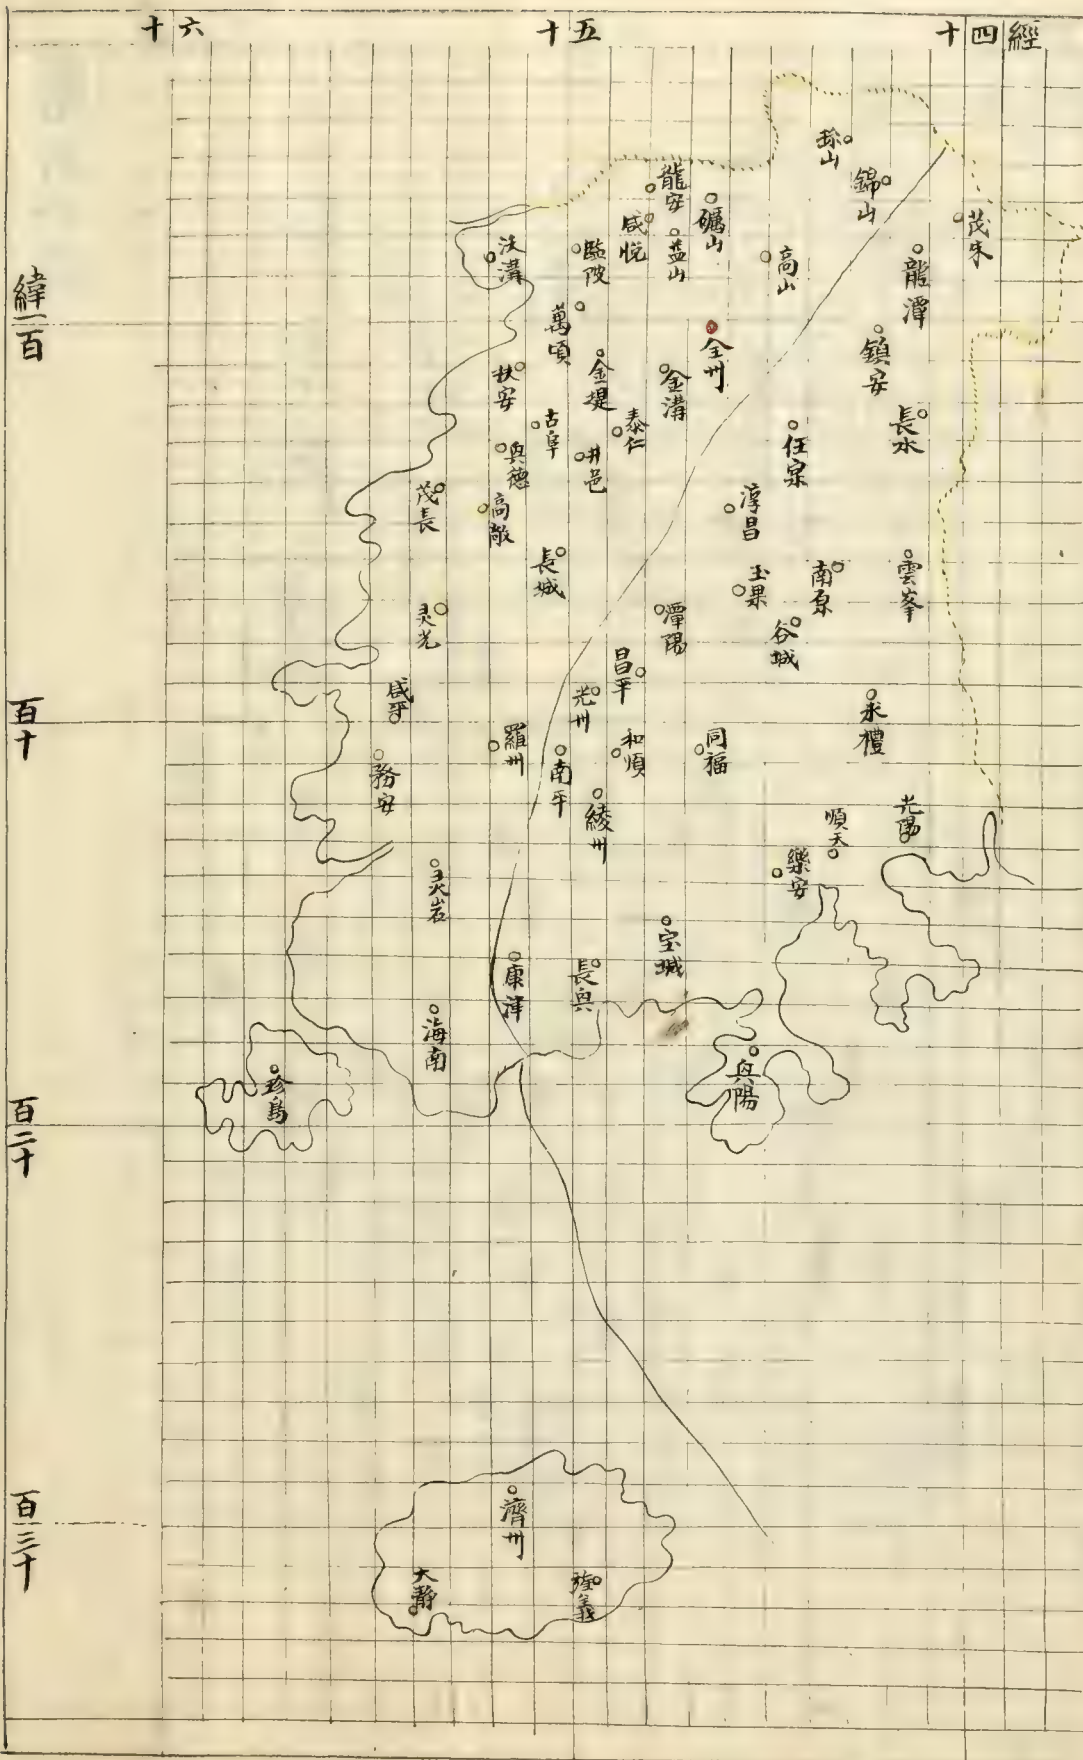 經
四十
五十
六十
緯一百
百十
百二十
百三十
珎山
錦山
茂朱
龍安
礪山
咸悅
益山
高山
龍潭
沃溝
臨陂
萬頃
全州
鎭安
扶安
金堤
金溝
長水
古阜
泰仁
任実
井邑
興德
茂長
高敞
淳昌
長城
玉果
南原
雲峯
灵光
潭陽
谷城
昌平
咸平
光州
羅州
南平
和順
同福
求禮
務安
綾州
順天
光陽
樂安
灵岩
宝城
康津
長興
海南
興陽
珍島
濟州
大靜
旌義